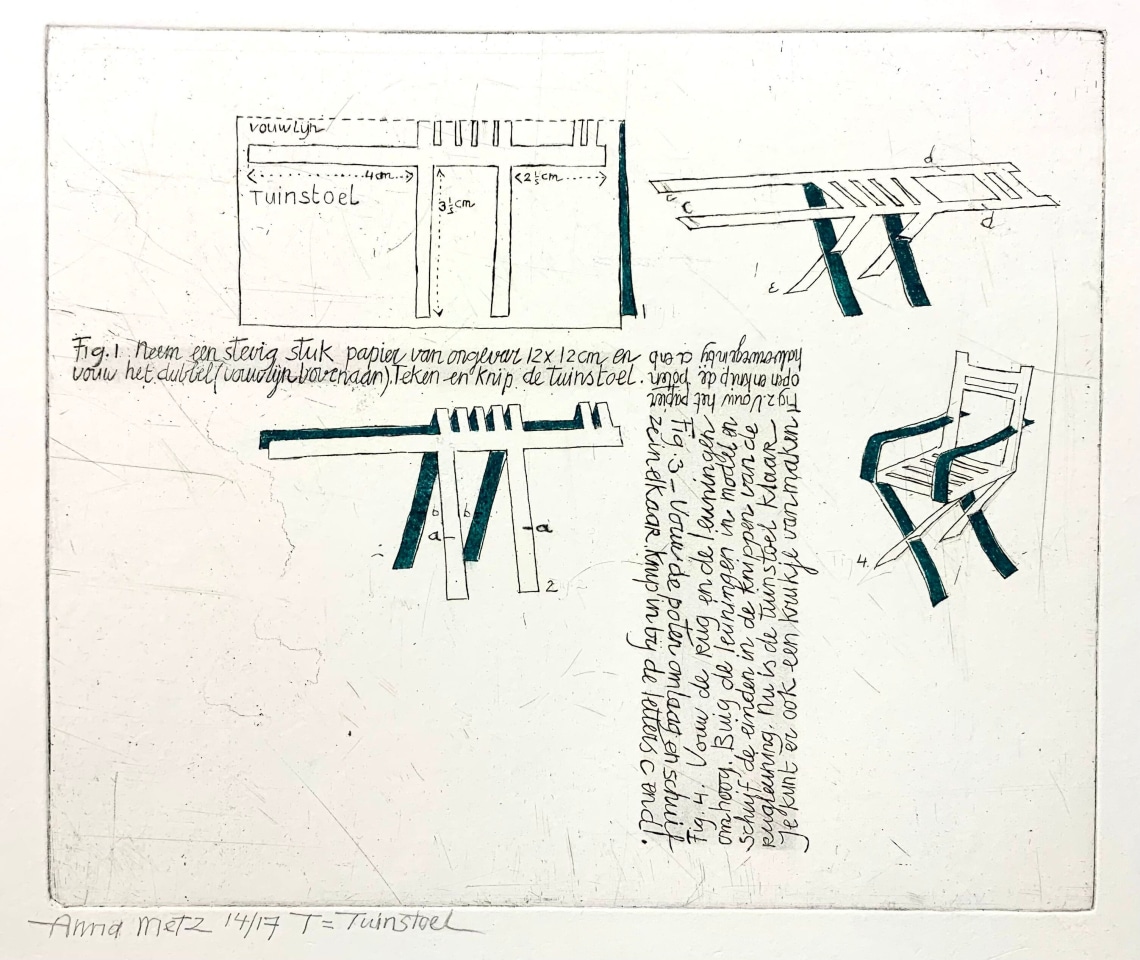 vouwlijn
4cm
2½cm
Tuinstoel
3½cm
1
d
c
c
d
3
Fig.1 Neem een stevig stuk papier van ongeveer 12x12cm en
vouw het dubbel (vouwlijn bovenaan). Teken en knip de tuinstoel.
Fig 2. Vouw het papier
open en knip de poten
halverwege in by a en b
b
b
a
a
2
Fig. 3 – Vouw de poten omlaag en schuif
ze in elkaar. Knip in by de letters c en d!
Fig. 4. Vouw de rug en de leuningen
omhoog. Buig de leuningen in model en
schuif de einden in de knippen van de
rugleuning. Nu is de tuinstoel klaar
Je kunt er ook een krukje van maken
4.
Anna Metz 14/17 T = Tuinstoel